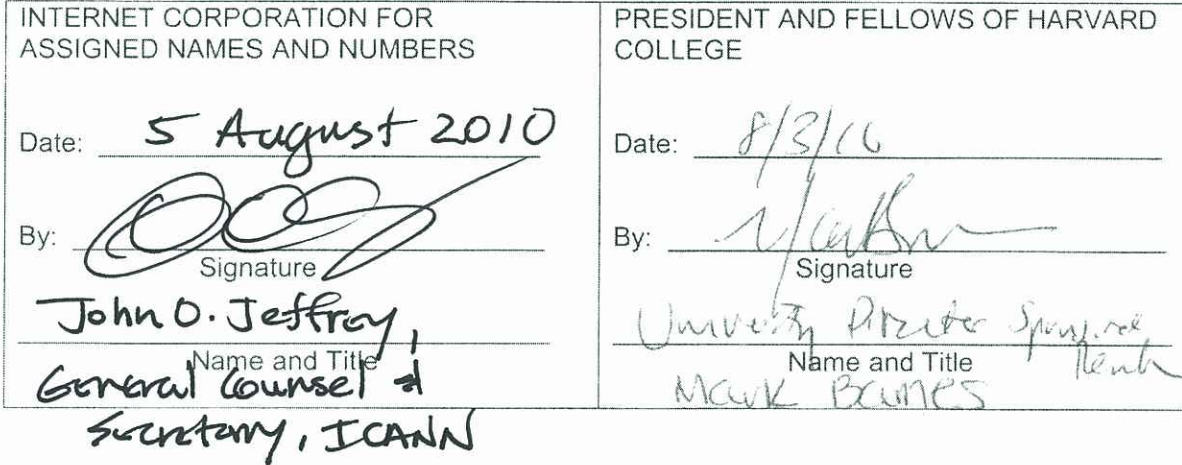 INTERNET CORPORATION FOR
ASSIGNED NAMES AND NUMBERS
Date: 5 August 2010
By:
Signature
John O. Jeffrey,
Name and Title
General Counsel &
Secretary, ICANN
PRESIDENT AND FELLOWS OF HARVARD
COLLEGE
Date: 8/3/10
By:
Signature
University Director
Name and Title
Mark Barnes